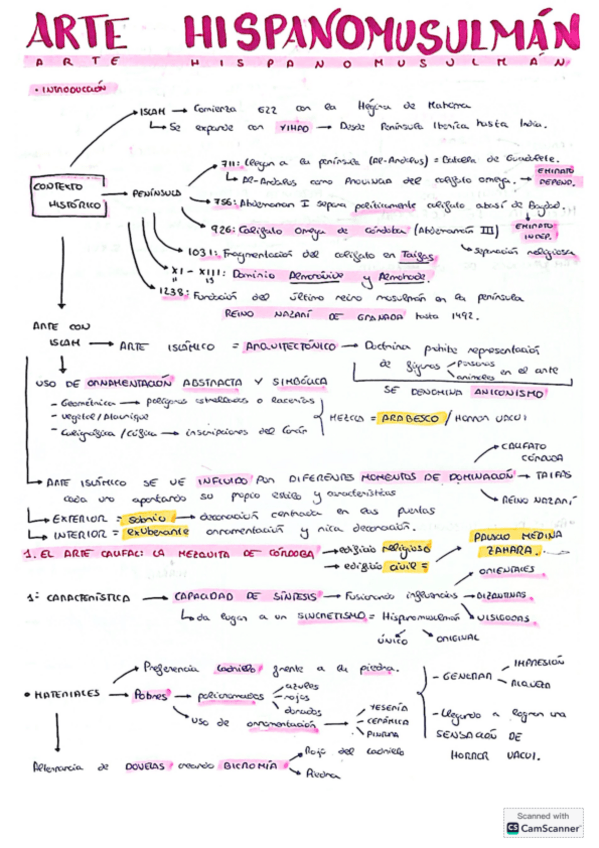 ARTE HISPANOMUSULMÁN
ARTE HISPANOMUSULMÁN
· INTRODUCCIÓN
ISLAM → Comienza 622 con la Hégira de Mahoma
↳ Se expande con YIHAD → Desde Península Iberica hasta India.
CONTEXTO HISTÓRICO → PENÍNSULA
711: llegan a la península (Al-Andalus) = Batalla de Guadalete.
↳ Al-Andalus como provincia del califato omeya. → EMIRATO DEPEND.
756: Abderraman I separa políticamente califato abasí de Bagdad.
EMIRATO INDEP.
926: Califato Omeya de Córdoba (Abderramán III)
↳ separación religiosa
1031: Fragmentación del califato en Taifas
XI - XIII: Dominio Almorávide y Almohade.
11 13
1238: Fundación del último reino musulmán en la península
REINO NAZARÍ DE GRANADA hasta 1492.
ARTE CON
ISLAM → ARTE ISLÁMICO = ARQUITECTÓNICO → Doctrina prohibe representación
de figuras personas animales en el arte
SE DENOMINA ANICONISMO
USO DE ORNAMENTACIÓN ABSTRACTA Y SIMBÓLICA
- Geométrica → polígonos estrellados o lacerías
- vegetal / Ataurique
- Caligráfica / cúfica → inscripciones del Corán
MEZCLA = ARABESCO / HORROR VACUI
ARTE ISLÁMICO SE VE INFLUIDO POR DIFERENTES MOMENTOS DE DOMINACIÓN
CALIFATO CÓRDOBA
TAIFAS
REINO NAZARÍ
cada uno aportando su propio estilo y características
↳ EXTERIOR = sobrio → decoración centrada en sus puertas
↳ INTERIOR = exuberante ornamentación y rica decoración.
1. EL ARTE CALIFAL: LA MEZQUITA DE CÓRDOBA → edificio religioso
→ edificio civil =
PALACIO MEDINA ZAHARA.
1ª CARACTERÍSTICA → CAPACIDAD DE SÍNTESIS → Fusionando influencias
ORIENTALES
BIZANTINAS
VISIGODAS
↳ da lugar a un SINCRETISMO = Hispanomusulmán
ÚNICO ORIGINAL
Preferencia ladrillo frente a la piedra.
• MATERIALES → Pobres → policromados
azules
rojos
dorados
Uso de ornamentación
YESERÍA
CERÁMICA
PINTURA
- GENERAR
IMPRESIÓN
RIQUEZA
- Llegando a lograr una
SENSACIÓN DE
HORROR VACUI.
Alternancia de DOVELAS creando BICROMÍA
Rojo del ladrillo
Piedra
Scanned with
CS CamScanner